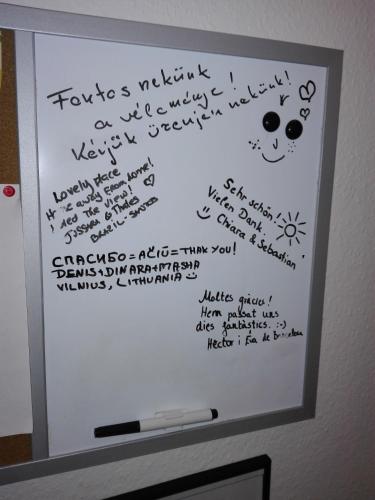 Fontos nekünk
a véleménye!
Kérjük üzenjen nekünk!
Lovely place
away from home!
the view!
Brazil
Sehr schön!
Vielen Dank
Chiara & Sebastian
СПАСИБО = AČIŪ = THANK YOU!
DENIS + DINARA + MASHA
VILNIUS, LITHUANIA
Moltes gràcies!
Hem passat uns
dies fantàstics. :-)
Hector i Éia de